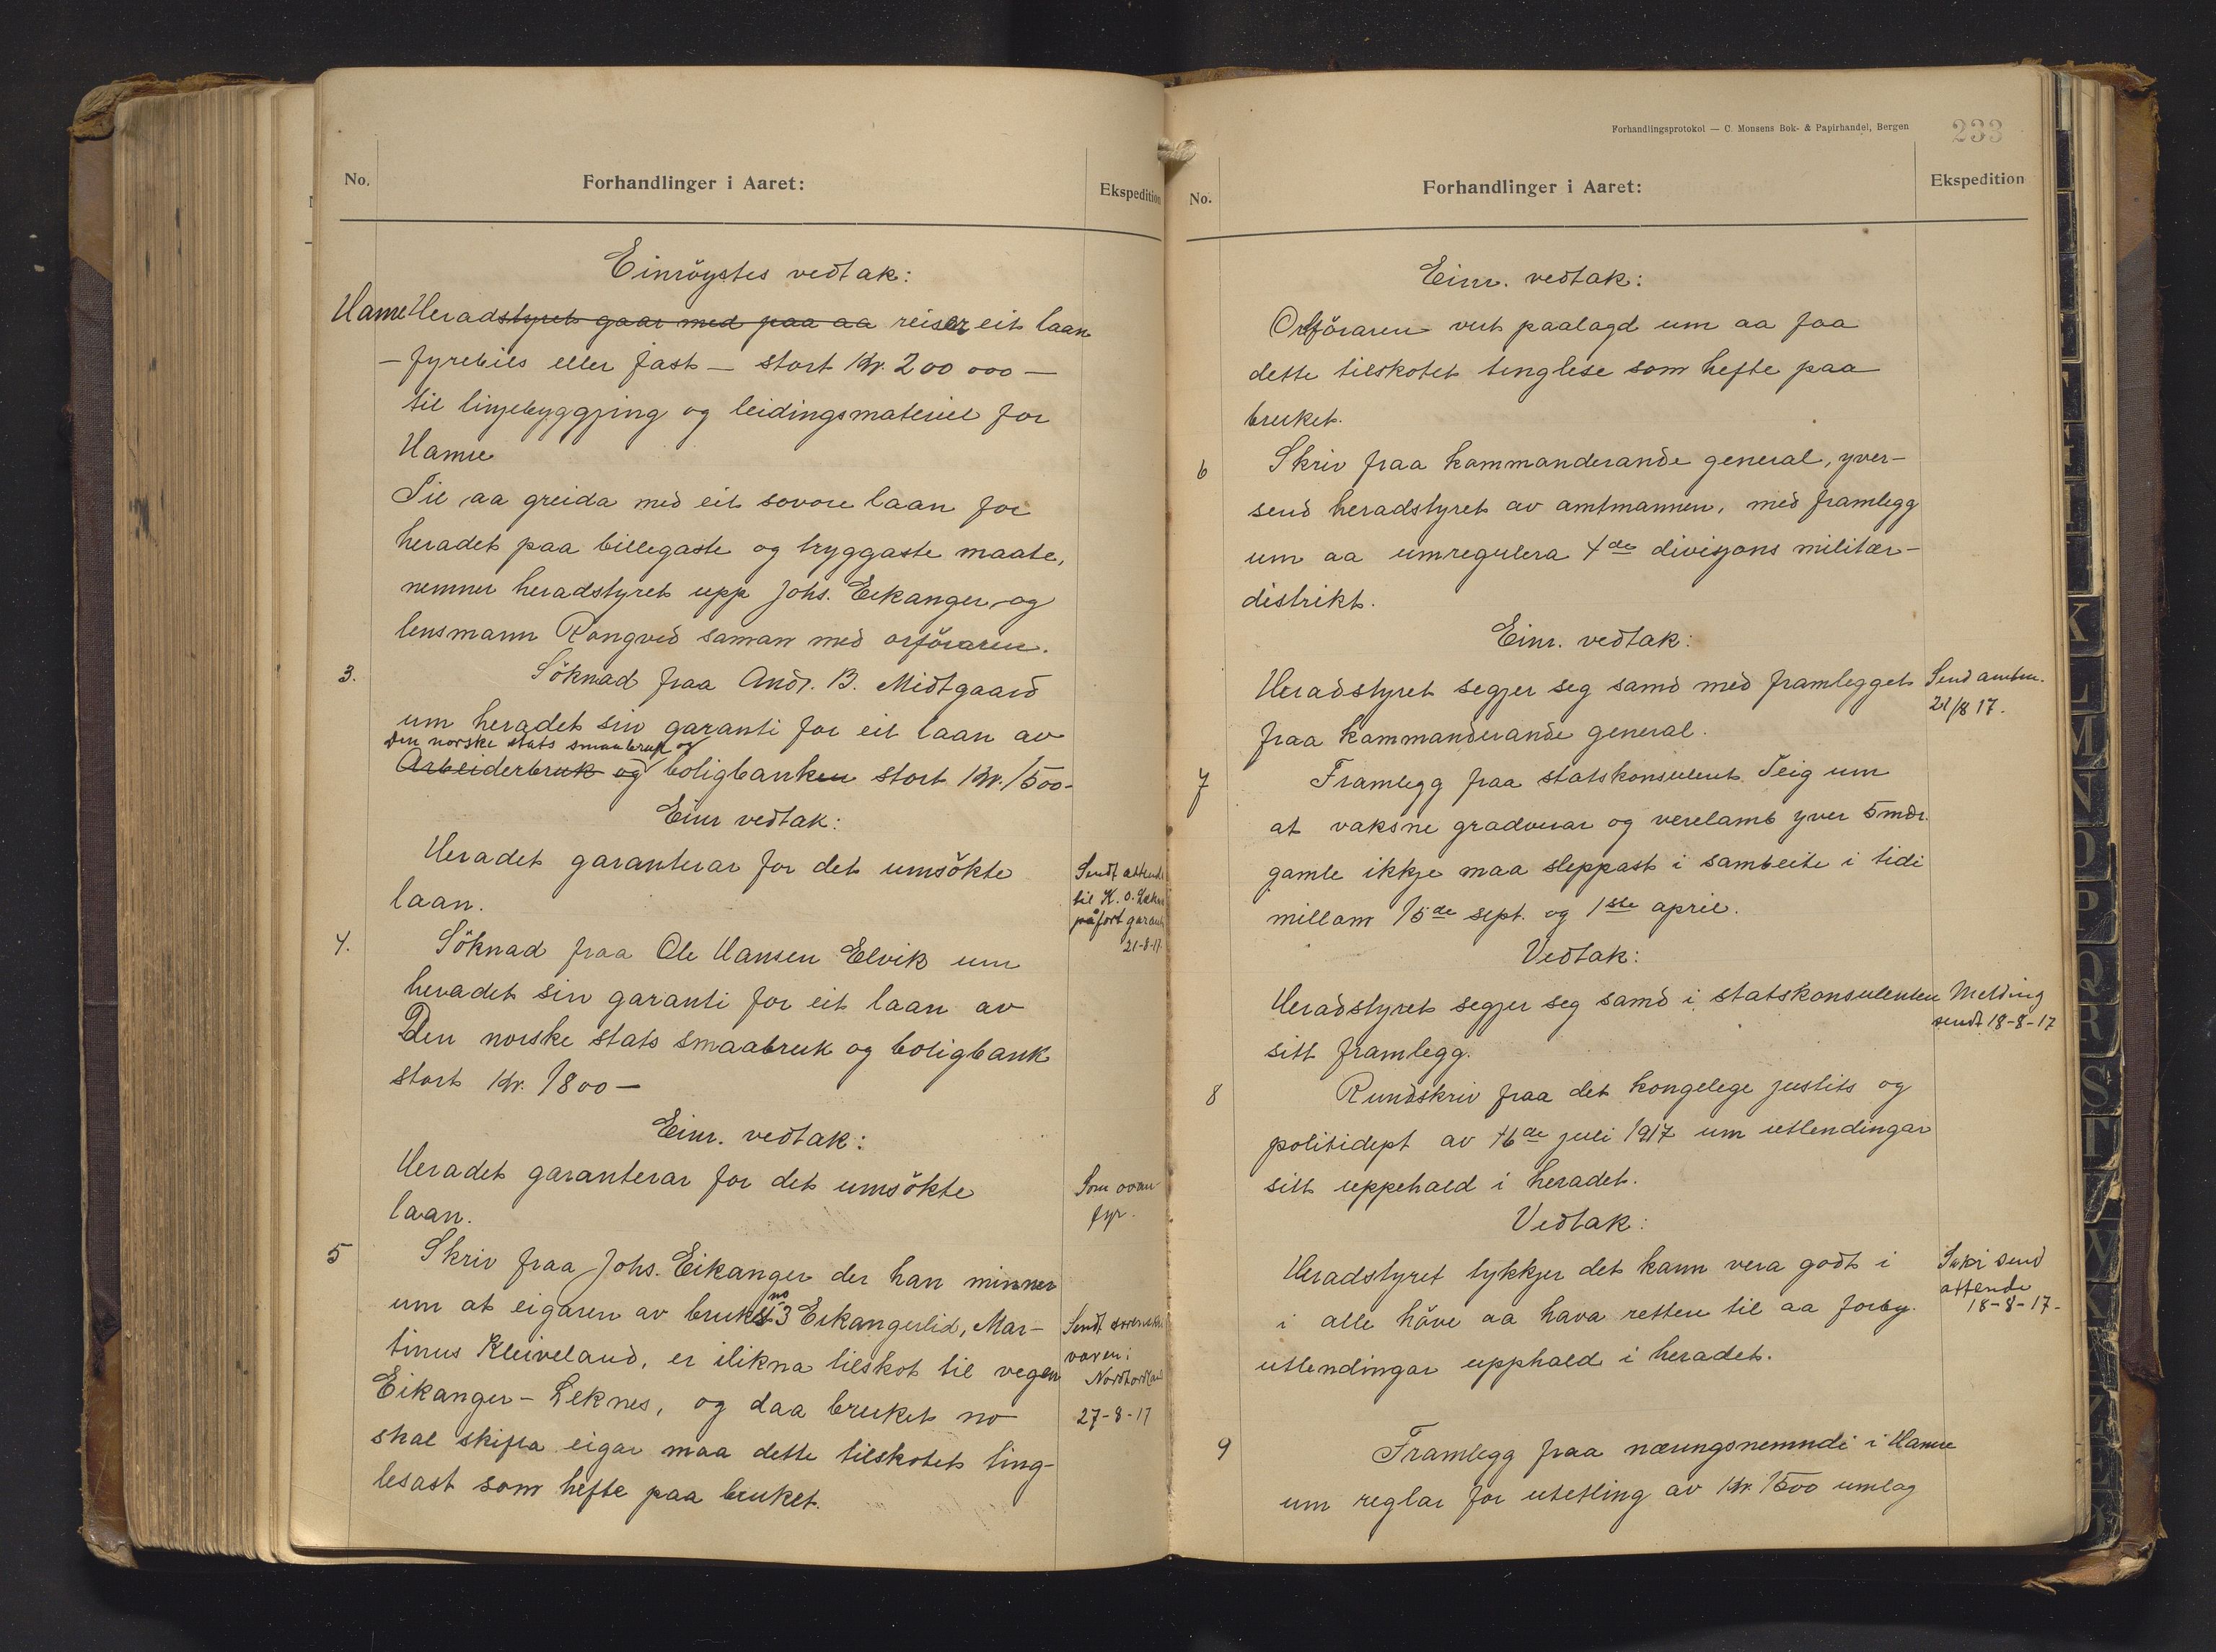 No.
Forhandlinger i Aaret:
Ekspedition
Einröystes vedtak:
Hamre Heradstyret gaar med paa aa reiser eit laan
– fyrebils eller fast – stort Kr. 200 000 –
til linjebyggjing og leidingsmateriel for
Hamre
Til aa greida med eit sovore laan for
heradet paa billegaste og tryggaste maate,
nemner heradstyret upp Johs. Eikanger og
lensmann Rongved saman med orföraren.
3.
Söknad fraa Andr. B. Midtgaard
um heradet sin garanti for eit laan av
Den norske stats smaabruk og
Arbeiderbruk og boligbanken stort Kr. 1500-
Einr vedtak:
Heradet garanterar for det umsökte
laan.
Sendt attende
til K. O.
påfört garanti
21-8-17
4.
Söknad fraa Ole Hansen Elvik um
heradet sin garanti for eit laan av
Den norske stats smaabruk og boligbank
stort Kr. 1800 –
Einr. vedtak:
Heradet garanterar for det umsökte
laan.
Som ovan-
fyr.
5
Skriv fraa Johs. Eikanger der han minner
um at eigaren av bruks no 3 Eikangerlid, Mar-
tinus Kleiveland, er ilikna tilskot til vegen
Eikanger - Leknes, og daa bruket no
skal skifta eigar maa dette tilskotet ting-
lesast som hefte paa bruket.
Sendt
varen i
Nordhordland
27-8-17
Forhandlingsprotokol — C. Monsens Bok- & Papirhandel, Bergen
233
No.
Forhandlinger i Aaret:
Ekspedition
Einr. vedtak:
Ordföraren vert paalagd um aa faa
dette tilskotet tinglese som hefte paa
bruket.
6
Skriv fraa kommanderande general, yver-
send heradstyret av amtmannen, med framlegg
um aa umregulera 4de divisjons militær-
distrikt.
Einr. vedtak:
Heradstyret segjer seg samd med framlegget
fraa kommanderande general.
Send amtm.
21/8 17.
7
Framlegg fraa statskonsulent Teig um
at vaksne gradverar og verelamb yver 5 mdr.
gamle ikkje maa sleppast i sambeite i tidi
millom 15de sept. og 1ste april.
Vedtak:
Heradstyret segjer seg samd i statskonsulenten
sitt framlegg.
Melding
sendt 18-8-17
8
Rundskriv fraa det kongelege justits og
politidept av 16de juli 1917 um utlendingar
sitt uppehald i heradet.
Vedtak:
Heradstyret tykkjer det kann vera godt i
i alle höve aa hava retten til aa forby.
utlendingar upphald i heradet.
send
attende
18-8-17-
9
Framlegg fraa næringsnemndi i Hamre
um reglar for utetling av Kr. 1500 umlag